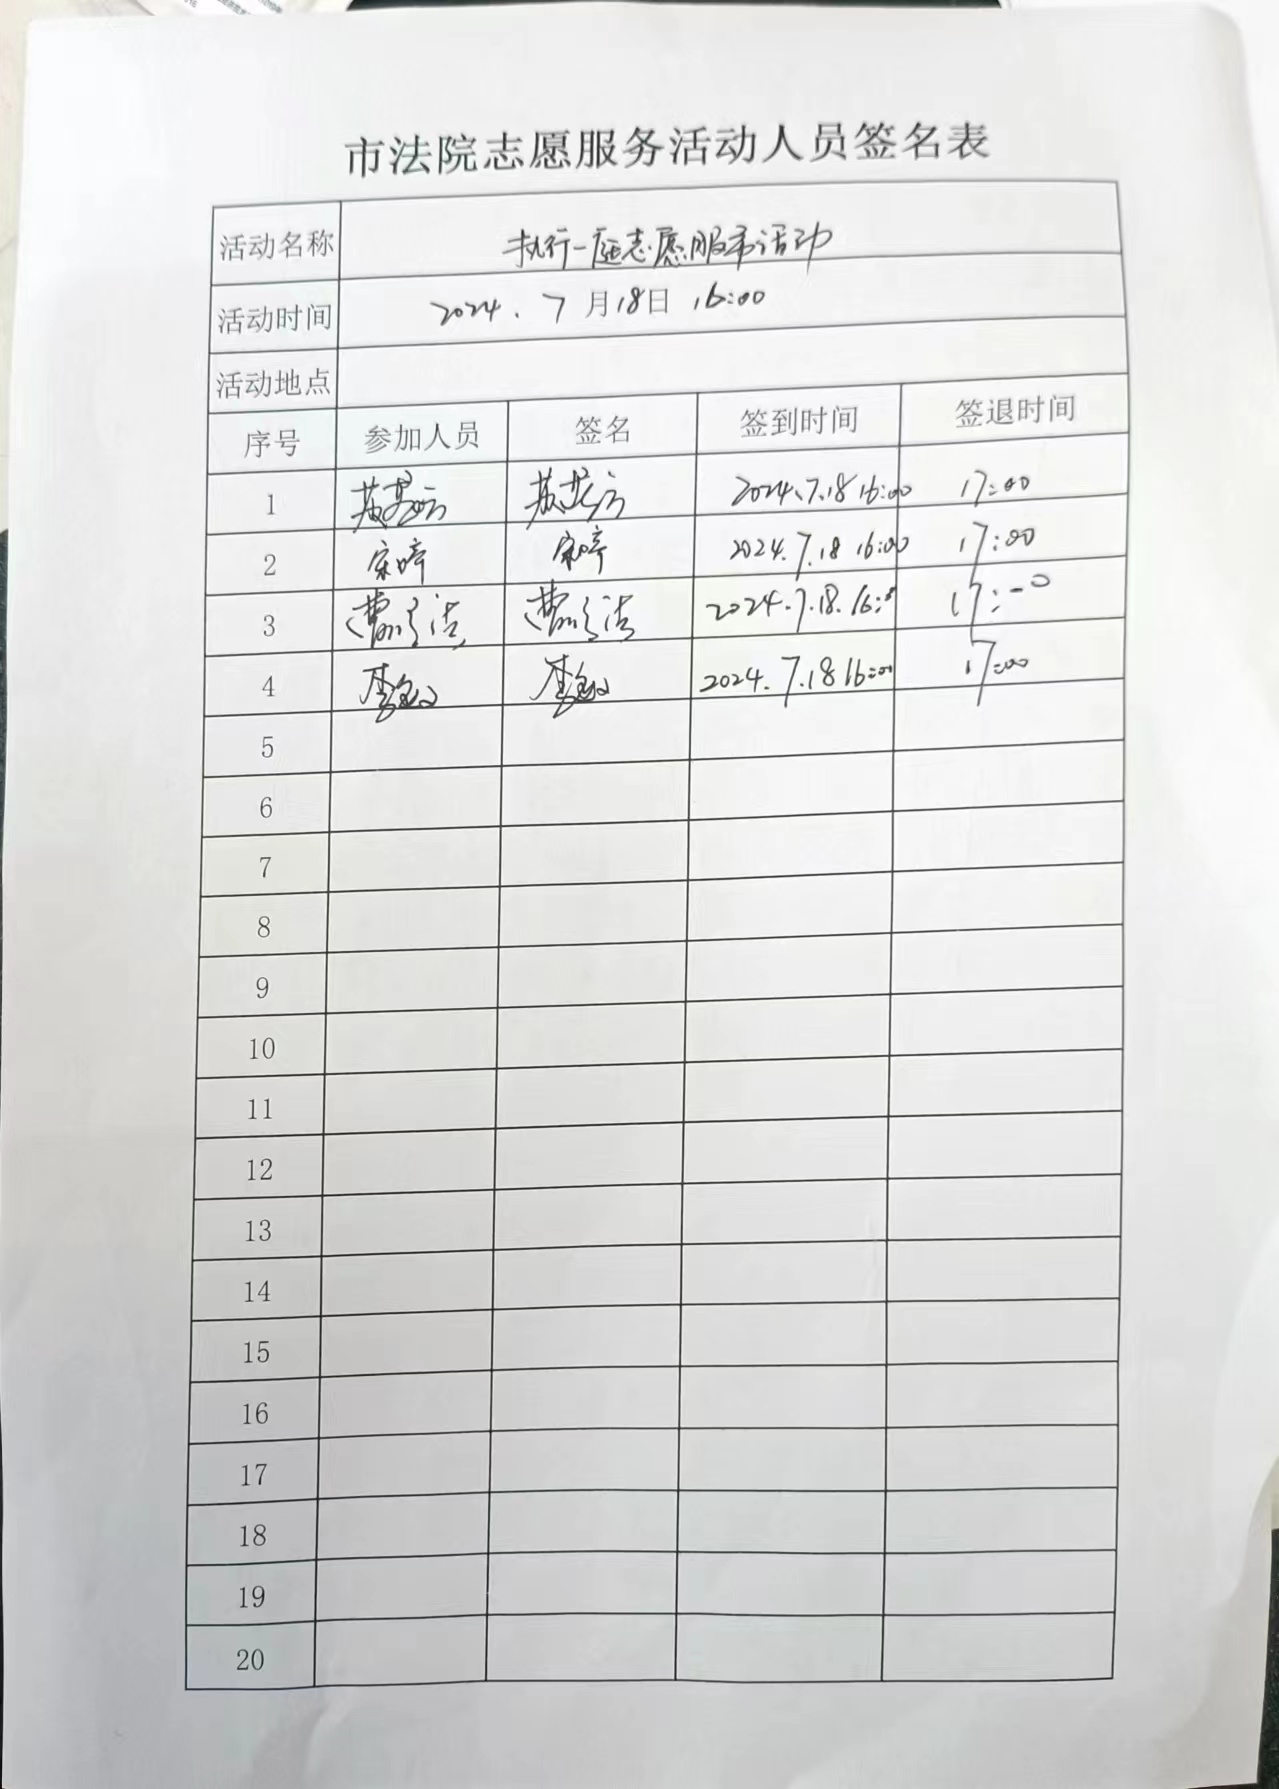 市法院志愿服务活动人员签名表
活动名称 执行一庭志愿服务活动
活动时间 2024.7月18日 16:00
活动地点
序号 参加人员 签名 签到时间 签退时间
1 2024.7.18 16:00 17:00
2 宋婷 宋婷 2024.7.18 16:00 17:00
3 2024.7.18. 16: 17:00
4 2024.7.18 16:00 17:00
5
6
7
8
9
10
11
12
13
14
15
16
17
18
19
20